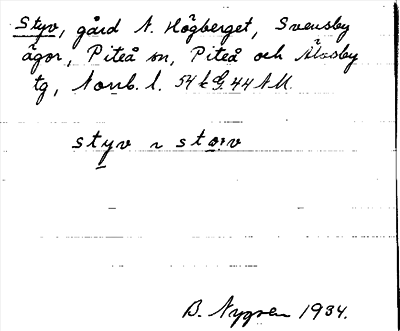 Styv, gård N. Högberget, Svensby
ägor, Piteå sn, Piteå och Älvsby
tg, Norrb. l. 54 k G. 44 N.M.
styv ~ sto:v
B. Nygren 1934.